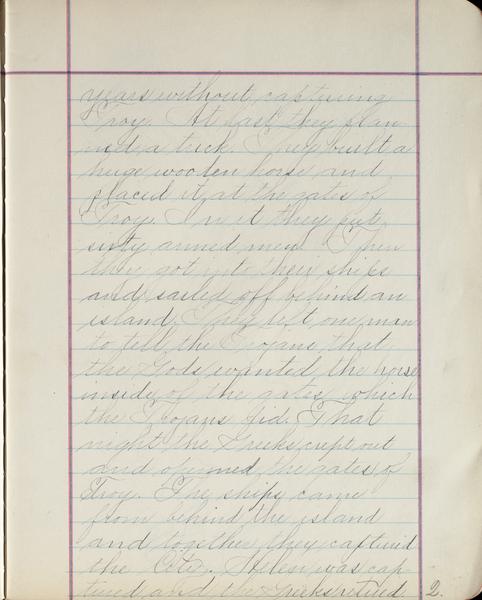 years without capturing
Troy. At last they plan-
ned a trick. They built a
huge wooden horse and
placed it at the gates of
Troy. In it they put
sixty armed men. Then
they got into their ships
and sailed off behind an
island. They left one man
to tell the Trojans that
the Gods wanted the horse
inside of the gates, which
the Trojans did. That
night the Greeks crept out
and openned the gates of
Troy. The ships came
from behind the island
and together they captured
the City. Helen was cap-
tured and the Greeks retired
2.